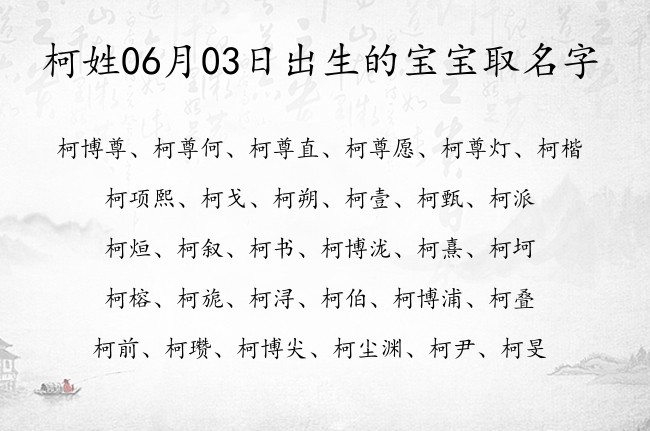 柯姓06月03日出生的宝宝取名字
柯博尊、柯尊何、柯尊直、柯尊愿、柯尊灯、柯楷
柯项熙、柯戈、柯朔、柯壹、柯甄、柯派
柯烜、柯叙、柯书、柯博泷、柯熹、柯坷
柯榕、柯旎、柯浔、柯伯、柯博浦、柯叠
柯前、柯瓒、柯博尖、柯尘渊、柯尹、柯旻